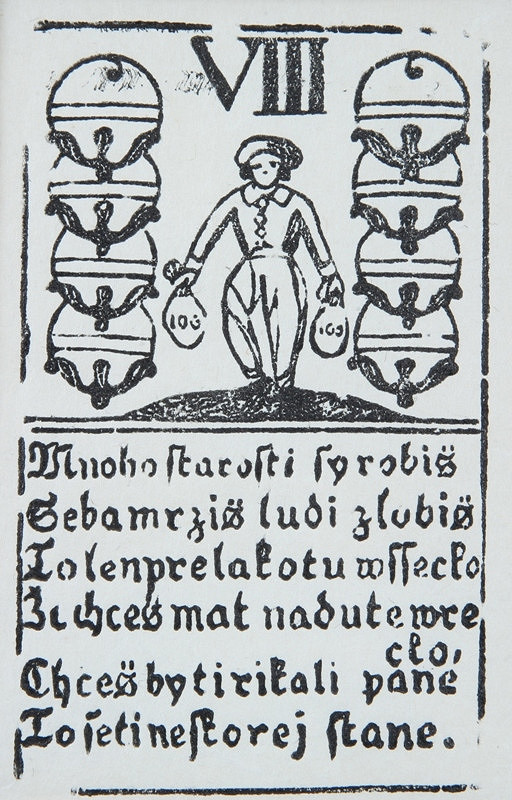 VIII
100 100
Mnoho ſtaroſti ſy robiš
Sebamrziš ludi zlobiš
To lenprelakotu wſſecko
Že chceš mat nadutewre
cko,
Chceš by ti rikali pane
To ſetineſkorej ſtane.